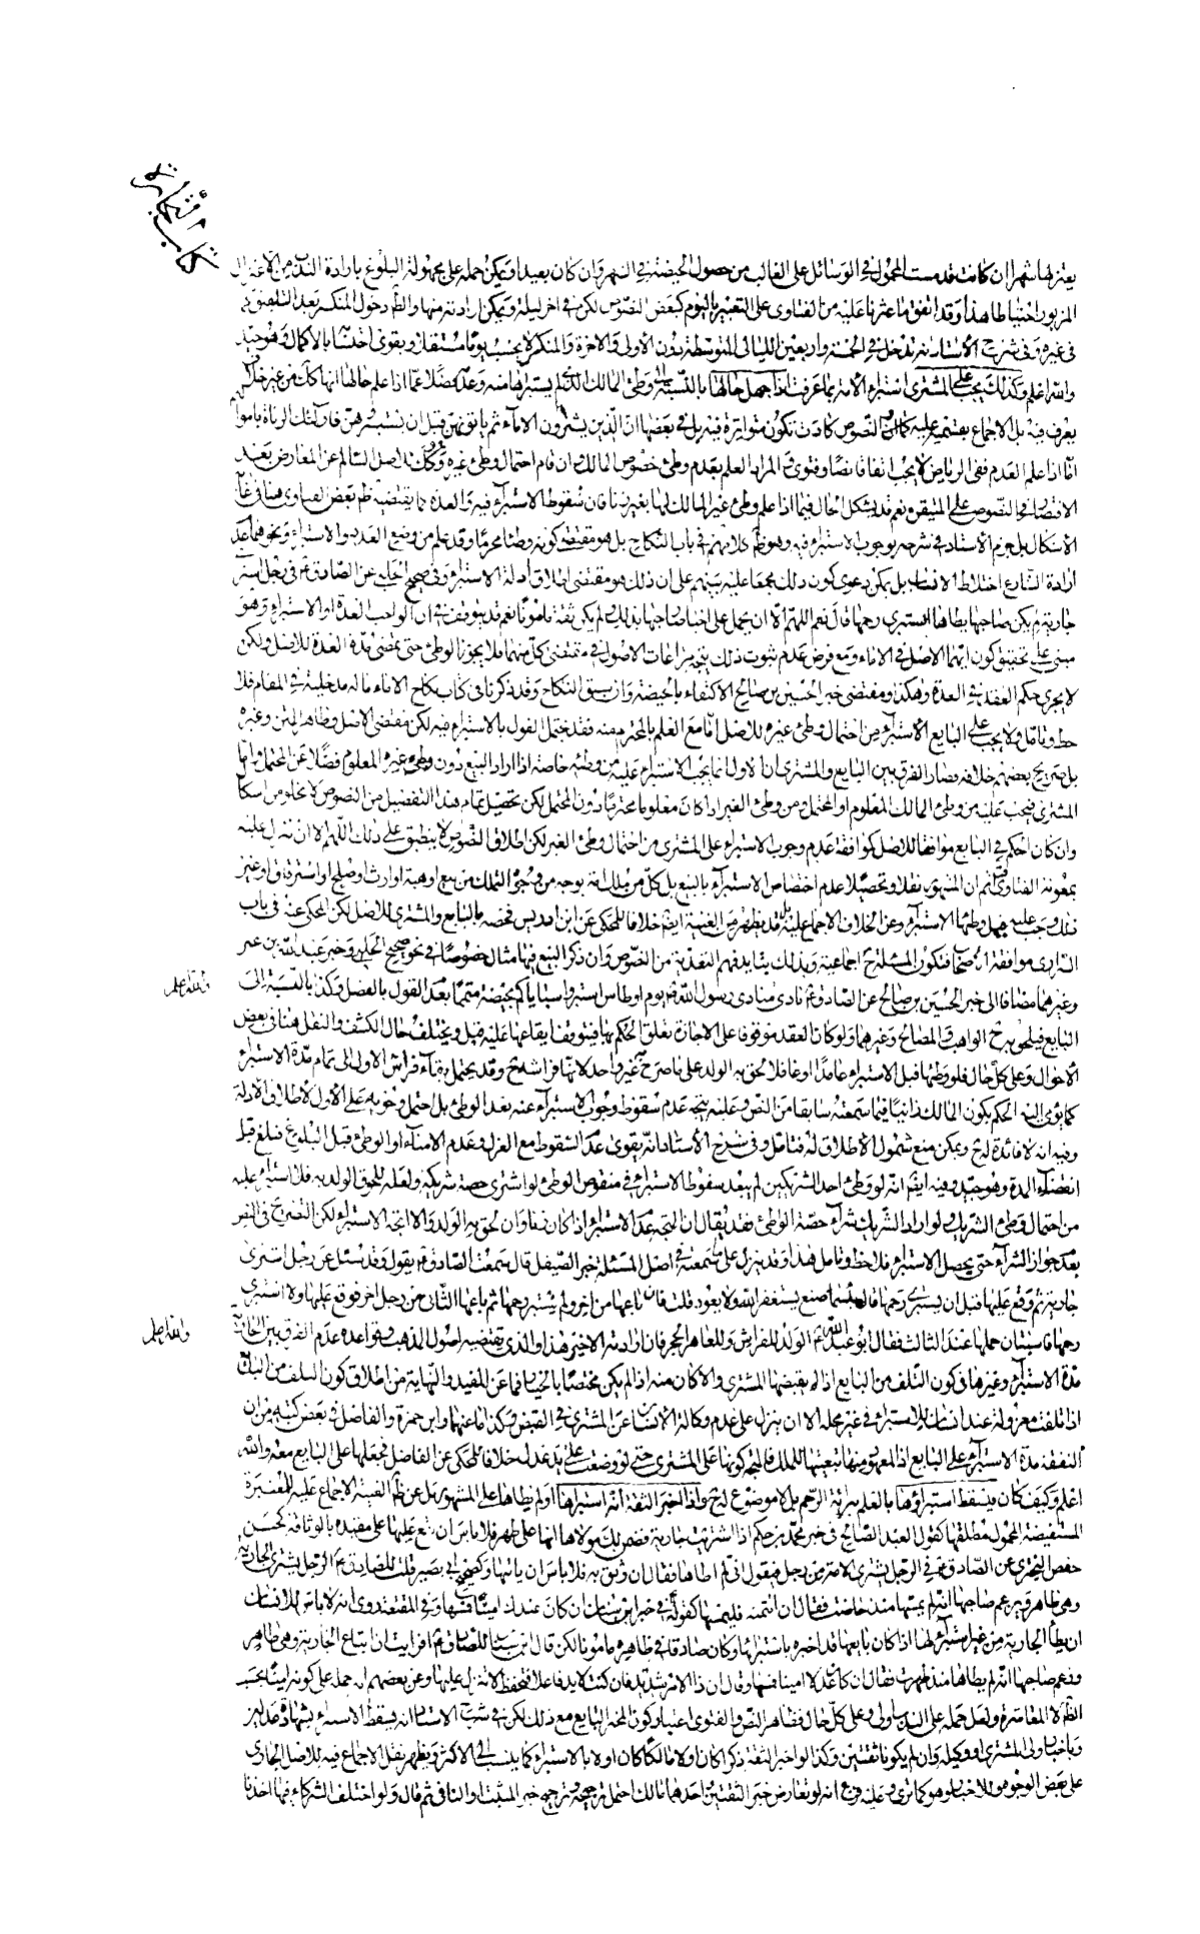 يعتزلها شهرا ان كانت قد مست المحمول في الوسائل على الغالب من حصول الحيضة في الشهر وان كان بعيدا ويمكن حمله على مجهولة البلوغ بارادة الندب من الاعتزال
المزبور احتياطا هذا وقد اتفق ما عثرنا عليه من الفتاوى على التعبير باليوم كبعض النصوص لكن في اخر ليلة ويمكن ارادته منها والظ دخول المنكسر بعد التلفيق
في غيره وفي شرح الاستاد انه تدخل في الخمسة واربعين الليالي المتوسطة دون الاولى والاخرة والمنكسر لا يحسب يوما مستقلا ويقوى اخذ بالاكمال وهو جيد
والله اعلم وكذلك يجب على المشتري استبراء الامة بما عرفت اذا جهل حالها بالنسبة الى وطئ المالك الذي لم يستبرئها منه وعدمه فضلا عما اذا علم حالها انها كك من غير خلاف
يعرف فيه بل الاجماع بقسميه عليه كما ان النصوص كادت تكون متواترة فيه بل في بعضها ان الذين يشترون الاماء ثم ياتونهن قبل ان يستبرؤهن فاولئك الزناة باموالهم
اما اذا علم العدم ففي الرياض لا يجب اتفاقا نصا وفتوى والمراد العلم بعدم وطئ خصوص المالك وان قام احتمال وطئ غيره وكك للاصل السالم عن المعارض بعد
الاقتصار في النصوص على المتيقن نعم قد يشكل الحال فيما اذا علم وطئ غير المالك لها بغير زنا فان سقوط الاستبراء فيه والعدة مما يقتضيه ظم بعض الفتاوى هنا في غاية
الاشكال بل جزم الاستاد في شرحه بوجوب الاستبراء فيه وهو ظم كلامهم في باب النكاح بل هو مقتضى كونه وطئا محرما وقد علم من وضع العدة والاستبراء ونحوهما عدم
ارادة الشارع اختلاط الانساب بل يمكن دعوى كون ذلك مجمعا عليه بينهم على ان ذلك هو مقتضى اطلاق ادلة الاستبراء وفي صحيح الحلبي عن الصادق ع في رجل اشترى
جارية لم يكن صاحبها يطاها ايستبرئ رحمها قال نعم اللهم الا ان يحمل على اخبار صاحبها بذلك ولم يكن ثقة مامونا نعم قد يتوقف في ان الواجب العدة او الاستبراء وهو
مبني على تحقيق كون ايهما الاصل في الاماء ومع فرض عدم ثبوت ذلك يتجه مراعات الاصول في مقتضى كل منهما فلا يجوز الوطئ حتى تمضي مدة العدة للاصل ولكن
لا يجري حكم العقد في العدة وهكذا ومقتضى خبر الحسين بن صالح الاكتفاء بالحيضة وان سبق النكاح وقد ذكرنا في كتاب نكاح الاماء ما له مدخلية في المقام فلا
حظ وتامل ولا يجب على البايع الاستبراء من احتمال وطئ غيره للاصل اما مع العلم بالمحترم منه فقد يحتمل القول بالاستبراء فيه لكن مقتضى الاصل وظاهر المتن وغيره
بل صريح بعضهم خلافه فصار الفرق بين البايع والمشتري ان الاول انما يجب الاستبراء عليه من وطئه خاصة اذا اراد البيع دون وطئ غيره المعلوم فضلا عن المحتمل واما
المشتري فيجب عليه من وطئ المالك المعلوم او المحتمل ومن وطئ الغير اذا كان معلوما محترما دون المحتمل لكن تحصيل تمام هذا التفصيل من النصوص لا يخلو من اشكال
وان كان الحكم في البايع موافقا للاصل كموافقة عدم وجوب الاستبراء على المشتري من احتمال وطئ الغير لكن اطلاق النصوص لا ينطبق على ذلك اللهم الا ان تنزل عليه
بمعونة الفتاوى ثم ان المشهور نقلا وتحصيلا عدم اختصاص الاستبراء بالبيع بل كل من ملك امة بوجه من وجوه التملك من بيع او هبة او ارث او صلح او استرقاق او غير
ذلك وجب عليه قبل وطئها الاستبراء وعن الخلاف الاجماع عليه بل قد يظهر من الغنية ايضا خلافا للمحكي عن ابن ادريس فخصه بالبايع والمشتري للاصل لكن المحكي عنه في باب
السراري موافقة الاصحاب فتكون المسئلة ح اجماعية وبذلك يتايد فهم التعدية من النصوص وان ذكر البيع فيها مثال خصوصا في نحو صحيح الحلبي وخبر عبد الله بن عمر
وغيرهما مضافا الى خبر الحسين بن صالح عن الصادق ع نادى منادى رسول الله ص يوم اوطاس استبرؤا سباياكم بحيضة متمما بعدم القول بالفصل وكذا بالنسبة الى
البايع فيلحق به ح الواهب والمصالح وغيرهما ولو كان العقد موقوفا على الاجازة تعلق الحكم بها فيتوقف ايقاعها عليه قبل ويختلف حال الكشف والنقل هنا في بعض
الاحوال وعلى كل حال فلو وطئها قبل الاستبراء عامدا او غافلا لحق به الولد على ما صرح غير واحد لانها فراشه ح وقد يحتمل بقاء فراش الاول الى تمام مدة الاستبراء
كما يومئ اليه الحكم بكون المالك زانيا فيما سمعته سابقا من النص وعليه يتجه عدم سقوط وجوب الاستبراء عنه بعد الوطئ بل احتمل وجوبه على الاول لاطلاق الادلة
وفيه انه لا فائدة له ح ويمكن منع شمول الاطلاق له فتامل وفي شرح الاستاد انه يقوى عدم السقوط مع العزل وعدم الامناء او الوطئ قبل البلوغ فبلغ قبل
انقضاء المدة وهو جيد وفيه ايضا انه لو وطئ احد الشريكين لم يبعد سقوط الاستبراء في منقوص الوطئ لو اشترى حصة شريكه ولعله للحوق الولد به فلا استبراء عليه
من احتمال وطئ الشريك ولو اراد الشريك شراء حصة الوطئ فقد يقال ان المتجه عدم الاستبراء اذا كان زنا وان لحق به الولد والا اتجه الاستبراء لكن التصريح في الخبر
بعدم جواز الشراء حتى يحصل الاستبراء فلاحظ وتامل هذا وقد ينزل على ما سمعته في اصل المسئلة خبر الصيقل قال سمعت الصادق ع يقول وقد سئل عن رجل اشترى
جارية ثم وقع عليها قبل ان يستبرئ رحمها قال بئسما صنع يستغفر الله ولا يعود قلت فان باعها من اخر ولم يستبرئ رحمها ثم باعها الثاني من رجل اخر فوقع عليها ولا استبرئ
رحمها فاستبان حملها عند الثالث فقال ابو عبد الله ع الولد للفراش وللعاهر الحجر فان ارادته الاخير هذا والذي تقتضيه اصول المذهب وقواعده عدم الفرق بين الحال
مدة الاستبراء وغيرها في كون التلف من البايع اذا لم يقبضها المشتري والا كان منه اذا لم يكن مختصا بالخيار فما عن المفيد والنهاية من اطلاق كون التلف من البايع
اذا تلفت معزولة عند انسان للاستبراء في غير محله الا ان ينزل على عدم وكالة الانسان عن المشتري في القبض وكذا ما عنهما وابن حمزة والفاضل في بعض كتبه من ان
النفقة مدة الاستبراء على البايع اذ المعهود منها تبعيتها للملك فالمتجه كونها على المشتري حتى لو وضعت على يد عدل خلافا للمحكي عن الفاضل فجعلها على البايع معه والله
اعلم وكيف كان فيسقط استبراؤها بالعلم ببرائة الرحم بل لا موضوع له ح واذا اخبر الثقة انه استبراها او لم يطاها على المشهور بل عن ظاهر الغنية الاجماع عليه للمعتبرة
المستفيضة المحمول مطلقها كقول العبد الصالح في خبر محمد بن حكيم اذا اشتريت جارية فضمن لك مولاها انها على طهر فلا باس ان تقع عليها على مقيده بالوثاقة كحسن
حفص البختري عن الصادق ع في الرجل يشتري الامة من رجل فيقول اني لم اطاها فقال ان وثق به فلا باس ان ياتيها وكصحيح ابي بصير قلت للصادق ع الرجل يشتري الجارية
وهي طاهرة ويزعم صاحبها انه لم يمسها منذ حاضت فقال ان ائتمنته فليمسها كقوله في خبر ابن سنان ان كان عندك امينا فمسها وفي المقنعة روي انه لا باس للانسان
ان يطأ الجارية من غير استبراء لها اذا كان بايعها قد اخبره باستبرائها وكان صادقا في ظاهره مامونا لكن قال ابن سنان للصادق ع افرايت ان ابتاع الجارية وهي طاهر
وزعم صاحبها انه لم يطاها منذ طهرت فقال ان كان عندك امينا فمسها وقال ان ذا الامر شديد فان كنت لا بد فاعلا فتحفظ لا تنزل عليها وعن بعضهم انه حمله على كونه امينا بحسب
الظم لا المعاشرة ولعل حمله على الندب اولى وعلى كل حال فظاهر النص والفتوى اعتبار كون المخبر البايع مع ذلك لكن في شرح الاستاد انه يسقط الاستبراء بشهادة عدلين
وباخبار ولي المشتري او وكيله وان لم يكونا ثقتين وكذا لو اخبر الثقة ذكرا كان او لا مالكا كان او لا بالاستبراء كما ينسب الى الاكثر ويظهر نقل الاجماع فيه للاصل الجاري
على بعض الوجوه وللاخبار وهو كما ترى وعليه فرع انه لو تعارض خبر الثقتين احدهما مالك احتمل ترجيحه وترجيح خبر المثبت والنافي ثم قال ولو اختلف الشركاء فيها اخذنا
كتاب التجارة
والله اعلم
والله اعلم